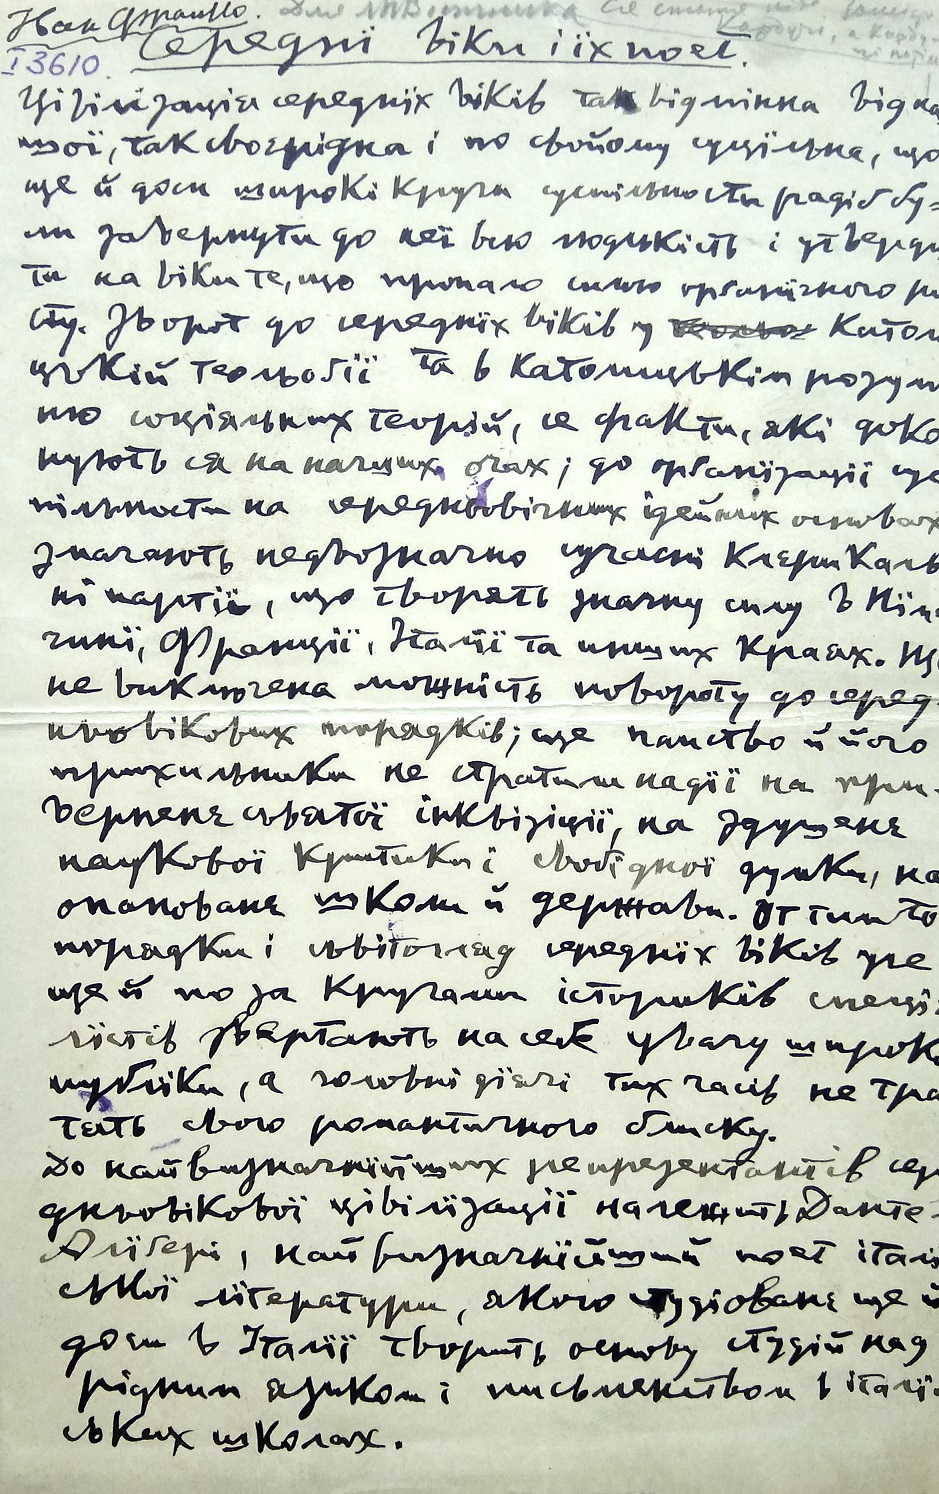 Іван Франко.
Середні віки і їх поет.
І 3610.
Цівілїзація середнїх віків так відмінна від на
шої, так своєрідна і по свойому суцїльна, що
ще й доси широкі круги суспільности раді б бу-
ли завернути до неї всю людскість і утверди
ти на віки те, що пропало силою орґанїчного ро
сту. Зворот до середнїх віків у католи
цькій теольоґії та в католицькім розумі
ню соціяльних теорій, се факти, які доко
нують ся на наших очах; до орґанїзації сус
пільности на середновічних ідейних основах
значають недвозначно сучасні клєрикаль
ні партії, що творять значну силу в Нїм
чинї, Франції, Італїї та инших краях. Ще
не виключена можність повороту до серед
ньовікових порядків; ще панство й його
прихильники не стратили надїї на при-
вернене сьвятої інквізіції, на здушене
наукової критики і свобідної думки, на
опановане школи й держави. От тим то
порядки і сьвітогляд середнїх віків уже
ще й поза кругами істориків спеція
лїстів звертають на себе увагу широкої
публїки, а головні дїячі тих часів не тра
тять свого романтичного блиску.
До найвизначнїйших репрезентантів сере
дньовікової цівілїзації належить Данте
Алїґєрі, найвизначнїйший поет італї
ської лїтератури, якого студіованє ще й
доси в Італїї творить основу студій над
рідним язиком і письменством в італї
ських школах.